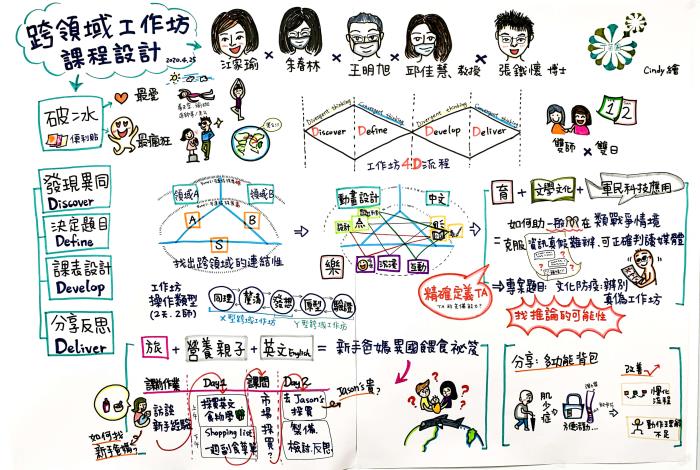 跨領域工作坊
課程設計
2020.4.25
江家瑜 × 朱春林 × 王明旭 × 邱佳慧 教授 × 張鐵懷 博士
Cindy繪
破冰
便利貼
最愛
最瘋狂
Divergent thinking
Convergent thinking
Divergent thinking
Convergent thinking
Discover
Define
Develop
Deliver
工作坊4D流程
雙師 × 雙日
1 2
發現異同
Discover
決定題目
Define
課表設計
Develop
分享反思
Deliver
領域A
領域B
A
B
S
找出跨領域的連結性
動畫設計
中文
設計
樂
互動
育 + 文學文化 + 軍民科技應用
如何助一般人在類戰爭情境
=克服資訊真假難辨.可正確判讀媒體
⇒專案題目:文化防疫:辨別
真偽工作坊
找推論的可能性
精確定義TA
工作坊
操作類型
(2天.2師)
同理
釐清
發想
原型
驗證
X型跨域工作坊
Y型跨域工作坊
旅 + 營養親子 + 英文English = 新手爸媽異國餵食祕笈
課前作業
Day1
課間
Day2
訪談
新手經驗
上午
下午
採買英文
食物學
Shopping list
一週副食菜單
市場採買?
去Jason's
採買
製備
檢討.反思
Jason's貴?
如何找
新手爸媽?
分享:多功能背包
肌少症
改善
優化
流程
動作理解
不足